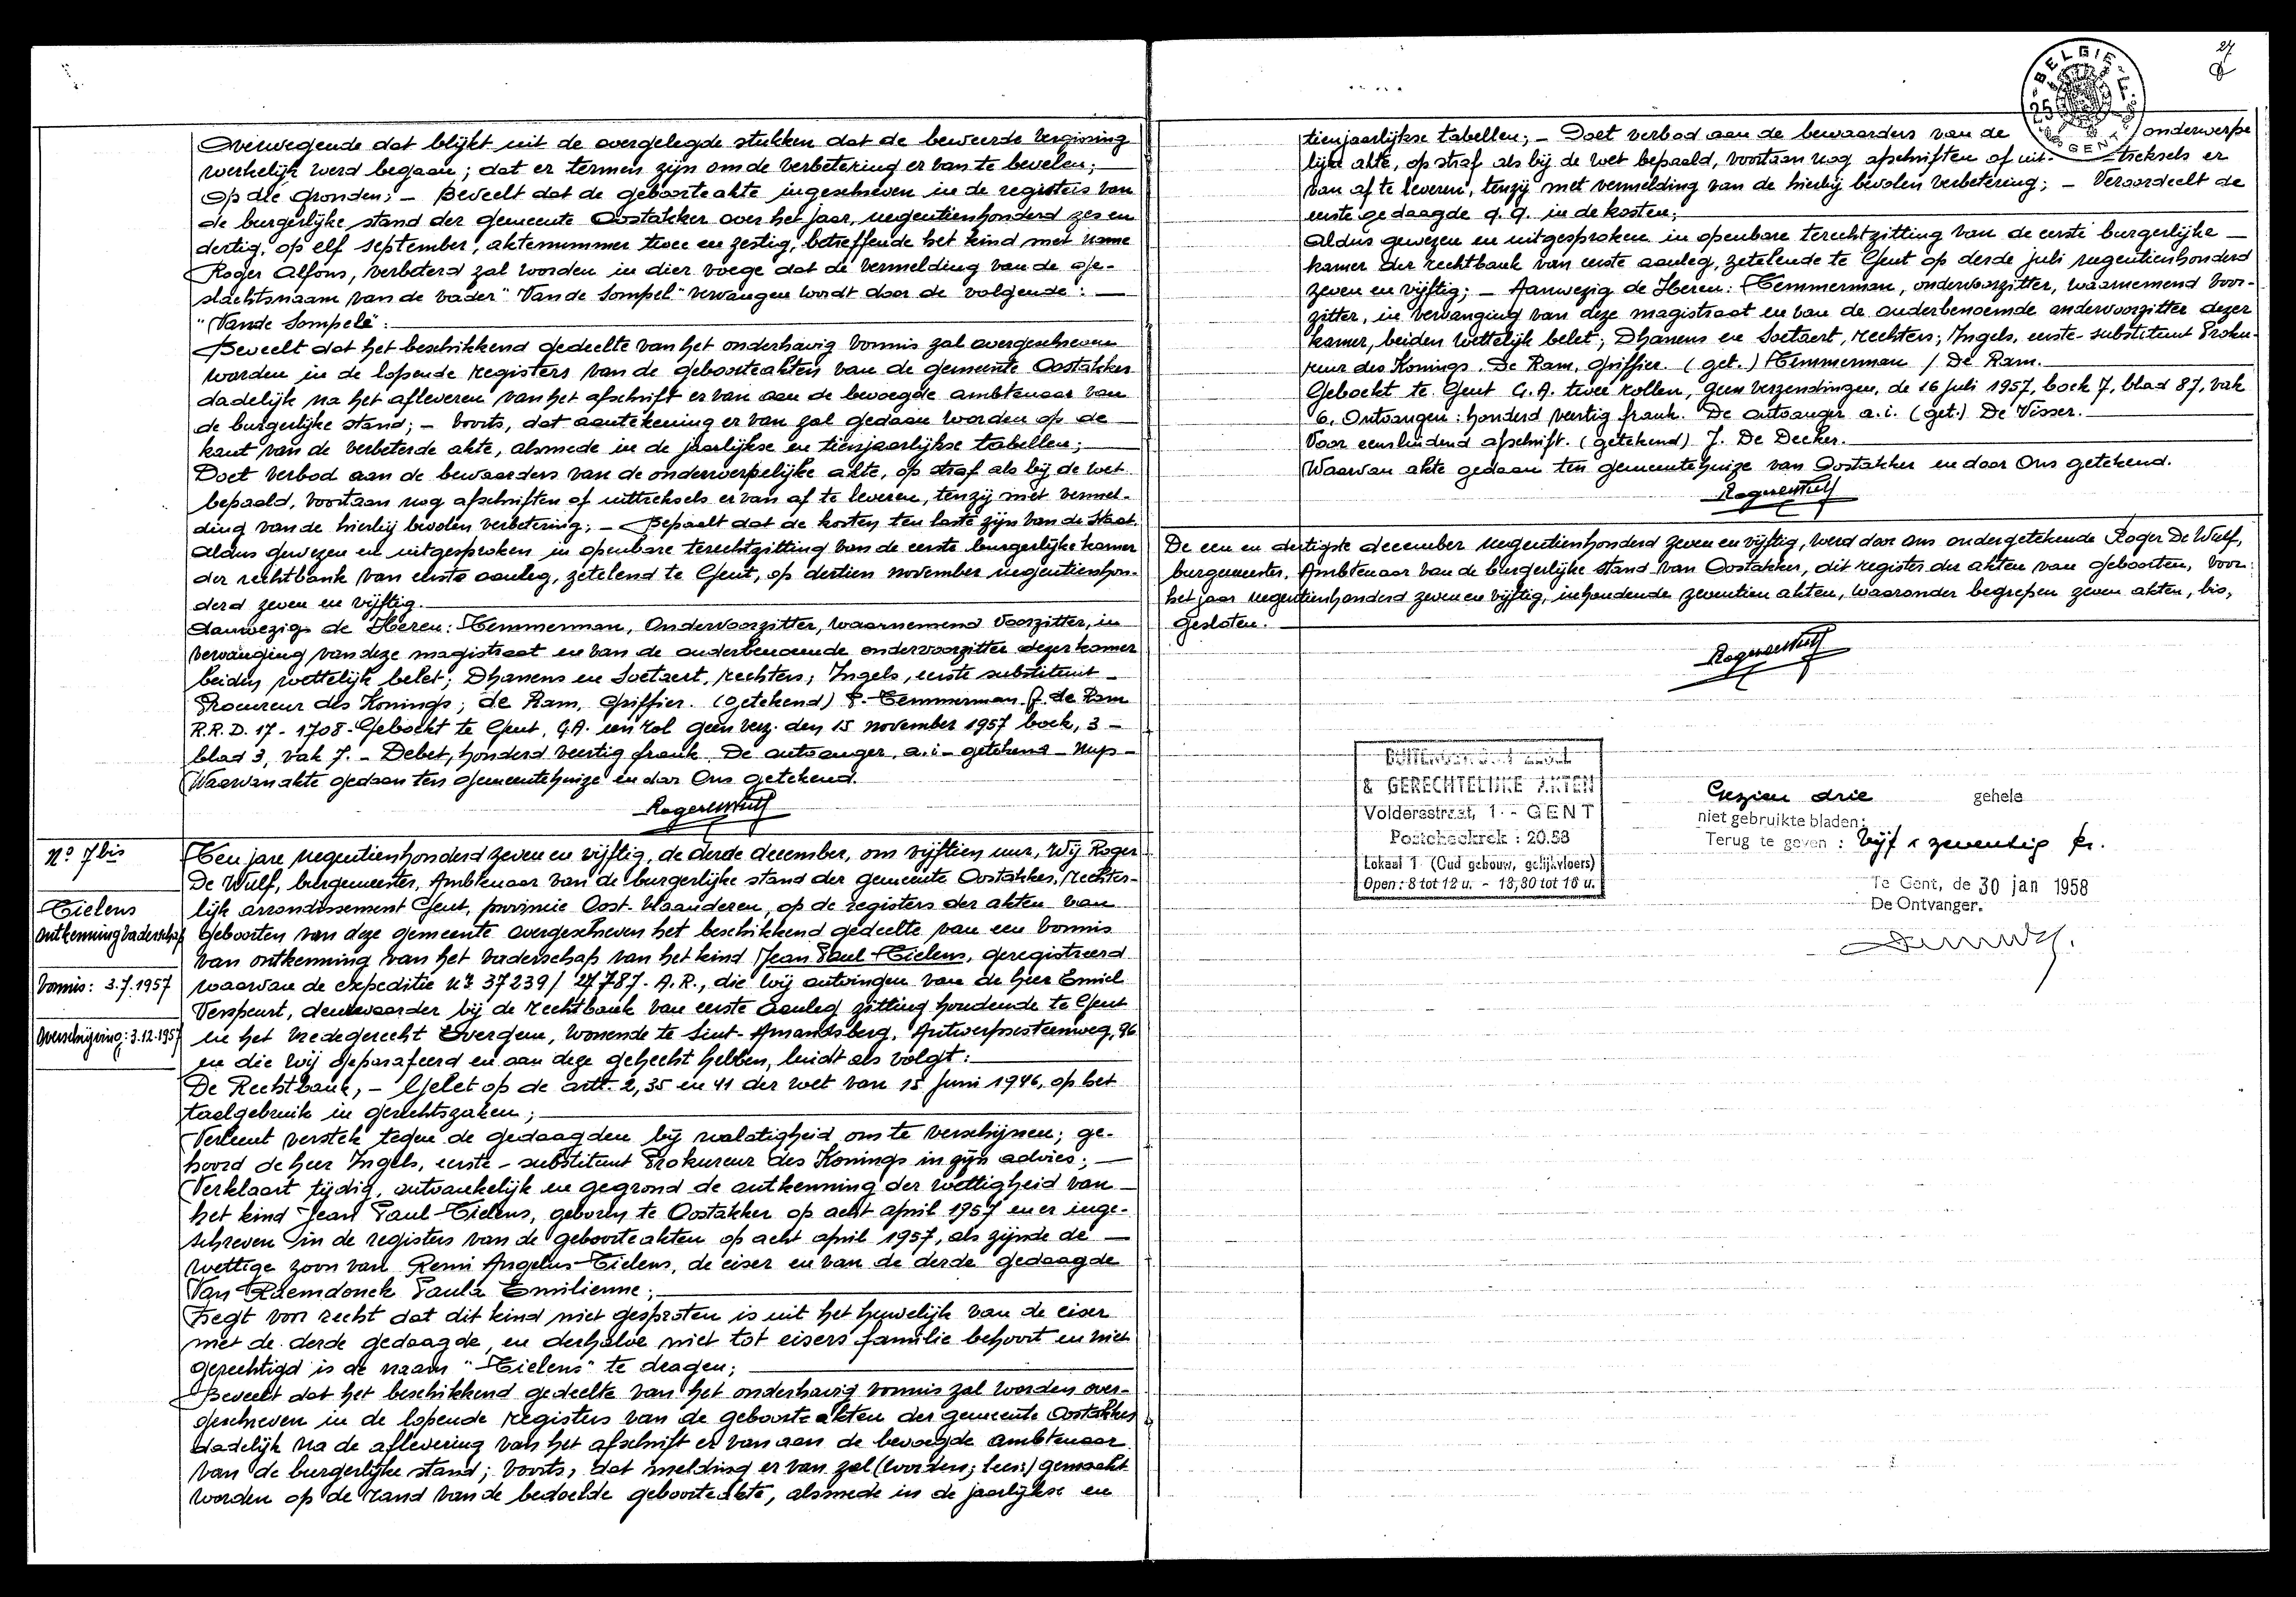 Overwegende dat blijkt uit de overgelegde stukken dat de beweerde vergissing
werkelijk werd begaan; dat er termen zijn om de verbetering er van te bevelen;
Op die gronden; – Beveelt dat de geboorteakte ingeschreven in de registers van
de burgerlijke stand der gemeente Oostakker over het jaar, negentienhonderd zes en
dertig, op elf september, aktenummer twee en zestig, betreffende het kind met name
Roger Alfons, verbeterd zal worden in dier voege dat de vermelding van de ge-
slachtsnaam van de vader "Van de Sompel" vervangen wordt door de volgende: —
"Vande Sompele":
Beveelt dat het beschikkend gedeelte van het onderhavig vonnis zal overgeschreven
worden in de lopende registers van de geboorteakten van de gemeente Oostakker
dadelijk na het afleveren van het afschrift er van aan de bevoegde ambtenaar van
de burgerlijke stand; – voorts, dat aantekening er van zal gedaan worden op de
kant van de verbeterde akte, alsmede in de jaarlijkse en tienjaarlijkse tabellen;
Doet verbod aan de bewaarders van de onderwerpelijke akte, op straf als bij de wet
bepaald, voortaan nog afschriften of uittreksels er van af te leveren, tenzij met vermel-
ding van de hierbij bevolen verbetering; – Bepaalt dat de kosten ten laste zijn van de Staat.
Aldus gewezen en uitgesproken in openbare terechtzitting van de eerste burgerlijke kamer
der rechtbank van eerste aanleg, zetelend te Gent, op dertien november negentienhon-
derd zeven en vijftig.
Aanwezig de Heren: Temmerman, Ondervoorzitter, waarnemend Voorzitter, in
vervanging van deze magistraat en van de ouderbenoemde ondervoorzitter dezer kamer
beiden wettelijk belet; Dhanens en Soetaert, rechters; Ingels, eerste substituut –
Procureur des Konings; de Ram, Griffier. (getekend) P. Temmerman J. de Ram
R.R.D. 17 - 1708 - Geboekt te Gent, G.A. een rol geen verz. den 15 november 1957 boek, 3 –
blad 3, vak 7. – Debet, honderd veertig frank. De ontvanger, a.i – getekend –
Waarvan akte gedaan ten gemeentehuize en door Ons getekend.
RogerDeWulf
No 7bis
Tielens
ontkenning vaderschap
Vonnis: 3.7.1957
Overschrijving: 3.12.1957
Ten jare negentienhonderd zeven en vijftig, de derde december, om vijftien uur, Wij Roger
De Wulf, burgemeester, Ambtenaar van de burgerlijke stand der gemeente Oostakker, rechter-
lijk arrondissement Gent, provincie Oost-Vlaanderen, op de registers der akten van
geboorten van deze gemeente overgeschreven het beschikkend gedeelte van een vonnis
van ontkenning van het vaderschap van het kind Jean Paul Tielens, geregistreerd
waarvan de expeditie nr 37239/ 27787. A.R., die wij ontvingen van de heer Emiel
Verspeurt, deurwaarder bij de rechtbank van eerste aanleg zitting houdende te Gent
en het vredegerecht Evergem, wonende te Sint-Amandsberg, Antwerpsesteenweg, 96
en die wij geparafeerd en aan deze gehecht hebben, luidt als volgt:
De Rechtbank, – Gelet op de artt. 2, 35 en 41 der wet van 15 Juni 1946, op het
taalgebruik in gerechtszaken;
Verleent verstek tegen de gedaagden bij nalatigheid om te verschijnen; ge-
hoord de heer Ingels, eerste – substituut Prokureur des Konings in zijn advies; —
Verklaart tijdig, ontvankelijk en gegrond de ontkenning der wettigheid van
het kind Jean Paul Tielens, geboren te Oostakker op acht april 1957 en er inge-
schreven in de registers van de geboorteakten op acht april 1957, als zijnde de —
wettige zoon van Remi Angelus Tielens, de eiser en van de derde gedaagde
Van Raemdonck Paula Emilienne;
Zegt voor recht dat dit kind niet gesproten is uit het huwelijk van de eiser
met de derde gedaagde, en derhalve niet tot eisers familie behoort en niet
gerechtigd is de naam "Tielens" te dragen;
Beveelt dat het beschikkend gedeelte van het onderhavig vonnis zal worden over-
geschreven in de lopende registers van de geboorteakten der gemeente Oostakker
dadelijk na de aflevering van het afschrift er van aan de bevoegde ambtenaar
van de burgerlijke stand; voorts, dat melding er van zal (worden; lees:) gemaakt
worden op de rand van de bedoelde geboorteakte, alsmede in de jaarlijkse en
27
BELGIE
25
GENT
tienjaarlijkse tabellen; – Doet verbod aan de bewaarders van de onderwerpe
lijke akte, op straf als bij de wet bepaald, voortaan nog afschriften of uit- treksels er
van af te leveren, tenzij met vermelding van de hierbij bevolen verbetering; – Veroordeelt de
eerste gedaagde q.q. in de kosten;
Aldus gewezen en uitgesproken in openbare terechtzitting van de eerste burgerlijke —
kamer der rechtbank van eerste aanleg, zetelende te Gent op derde juli negentienhonderd
zeven en vijftig; – Aanwezig de Heren: Temmerman, ondervoorzitter, waarnemend voor-
zitter, in vervanging van deze magistraat en van de ouderbenoemde ondervoorzitter dezer
kamer, beiden wettelijk belet; Dhanens en Soetaert, rechters; Ingels, eerste-substituut Proku-
reur des Konings. De Ram, Griffier. (get.) Temmerman / De Ram.
Geboekt te Gent G.A. twee rollen, geen verzendingen, de 16 juli 1957, boek 7, blad 87, vak
6. Ontvangen: honderd veertig frank. De ontvanger a.i. (get.) De Visser.
Voor eensluidend afschrift. (getekend) J. De Decker.
Waarvan akte gedaan ten gemeentehuize van Oostakker en door Ons getekend.
RogerDeWulf
De een en dertigste december negentienhonderd zeven en vijftig, werd door ons ondergetekende Roger De Wulf,
burgemeester, Ambtenaar van de burgerlijke stand van Oostakker, dit register der akten van geboorten, voor
het jaar negentienhonderd zeven en vijftig, inhoudende zeventien akten, waaronder begrepen zeven akten, bis,
gesloten.
RogerDeWulf
& GERECHTELIJKE AKTEN
Voldersstraat, 1 - GENT
Postcheckrek : 20.53
Lokaal 1 (Oud gebouw, gelijkvloers)
Open : 8 tot 12 u. - 13,30 tot 16 u.
Gezien drie gehele
niet gebruikte bladen:
Terug te geven : Vijf & zeventig fr.
Te Gent, de 30 jan 1958
De Ontvanger.